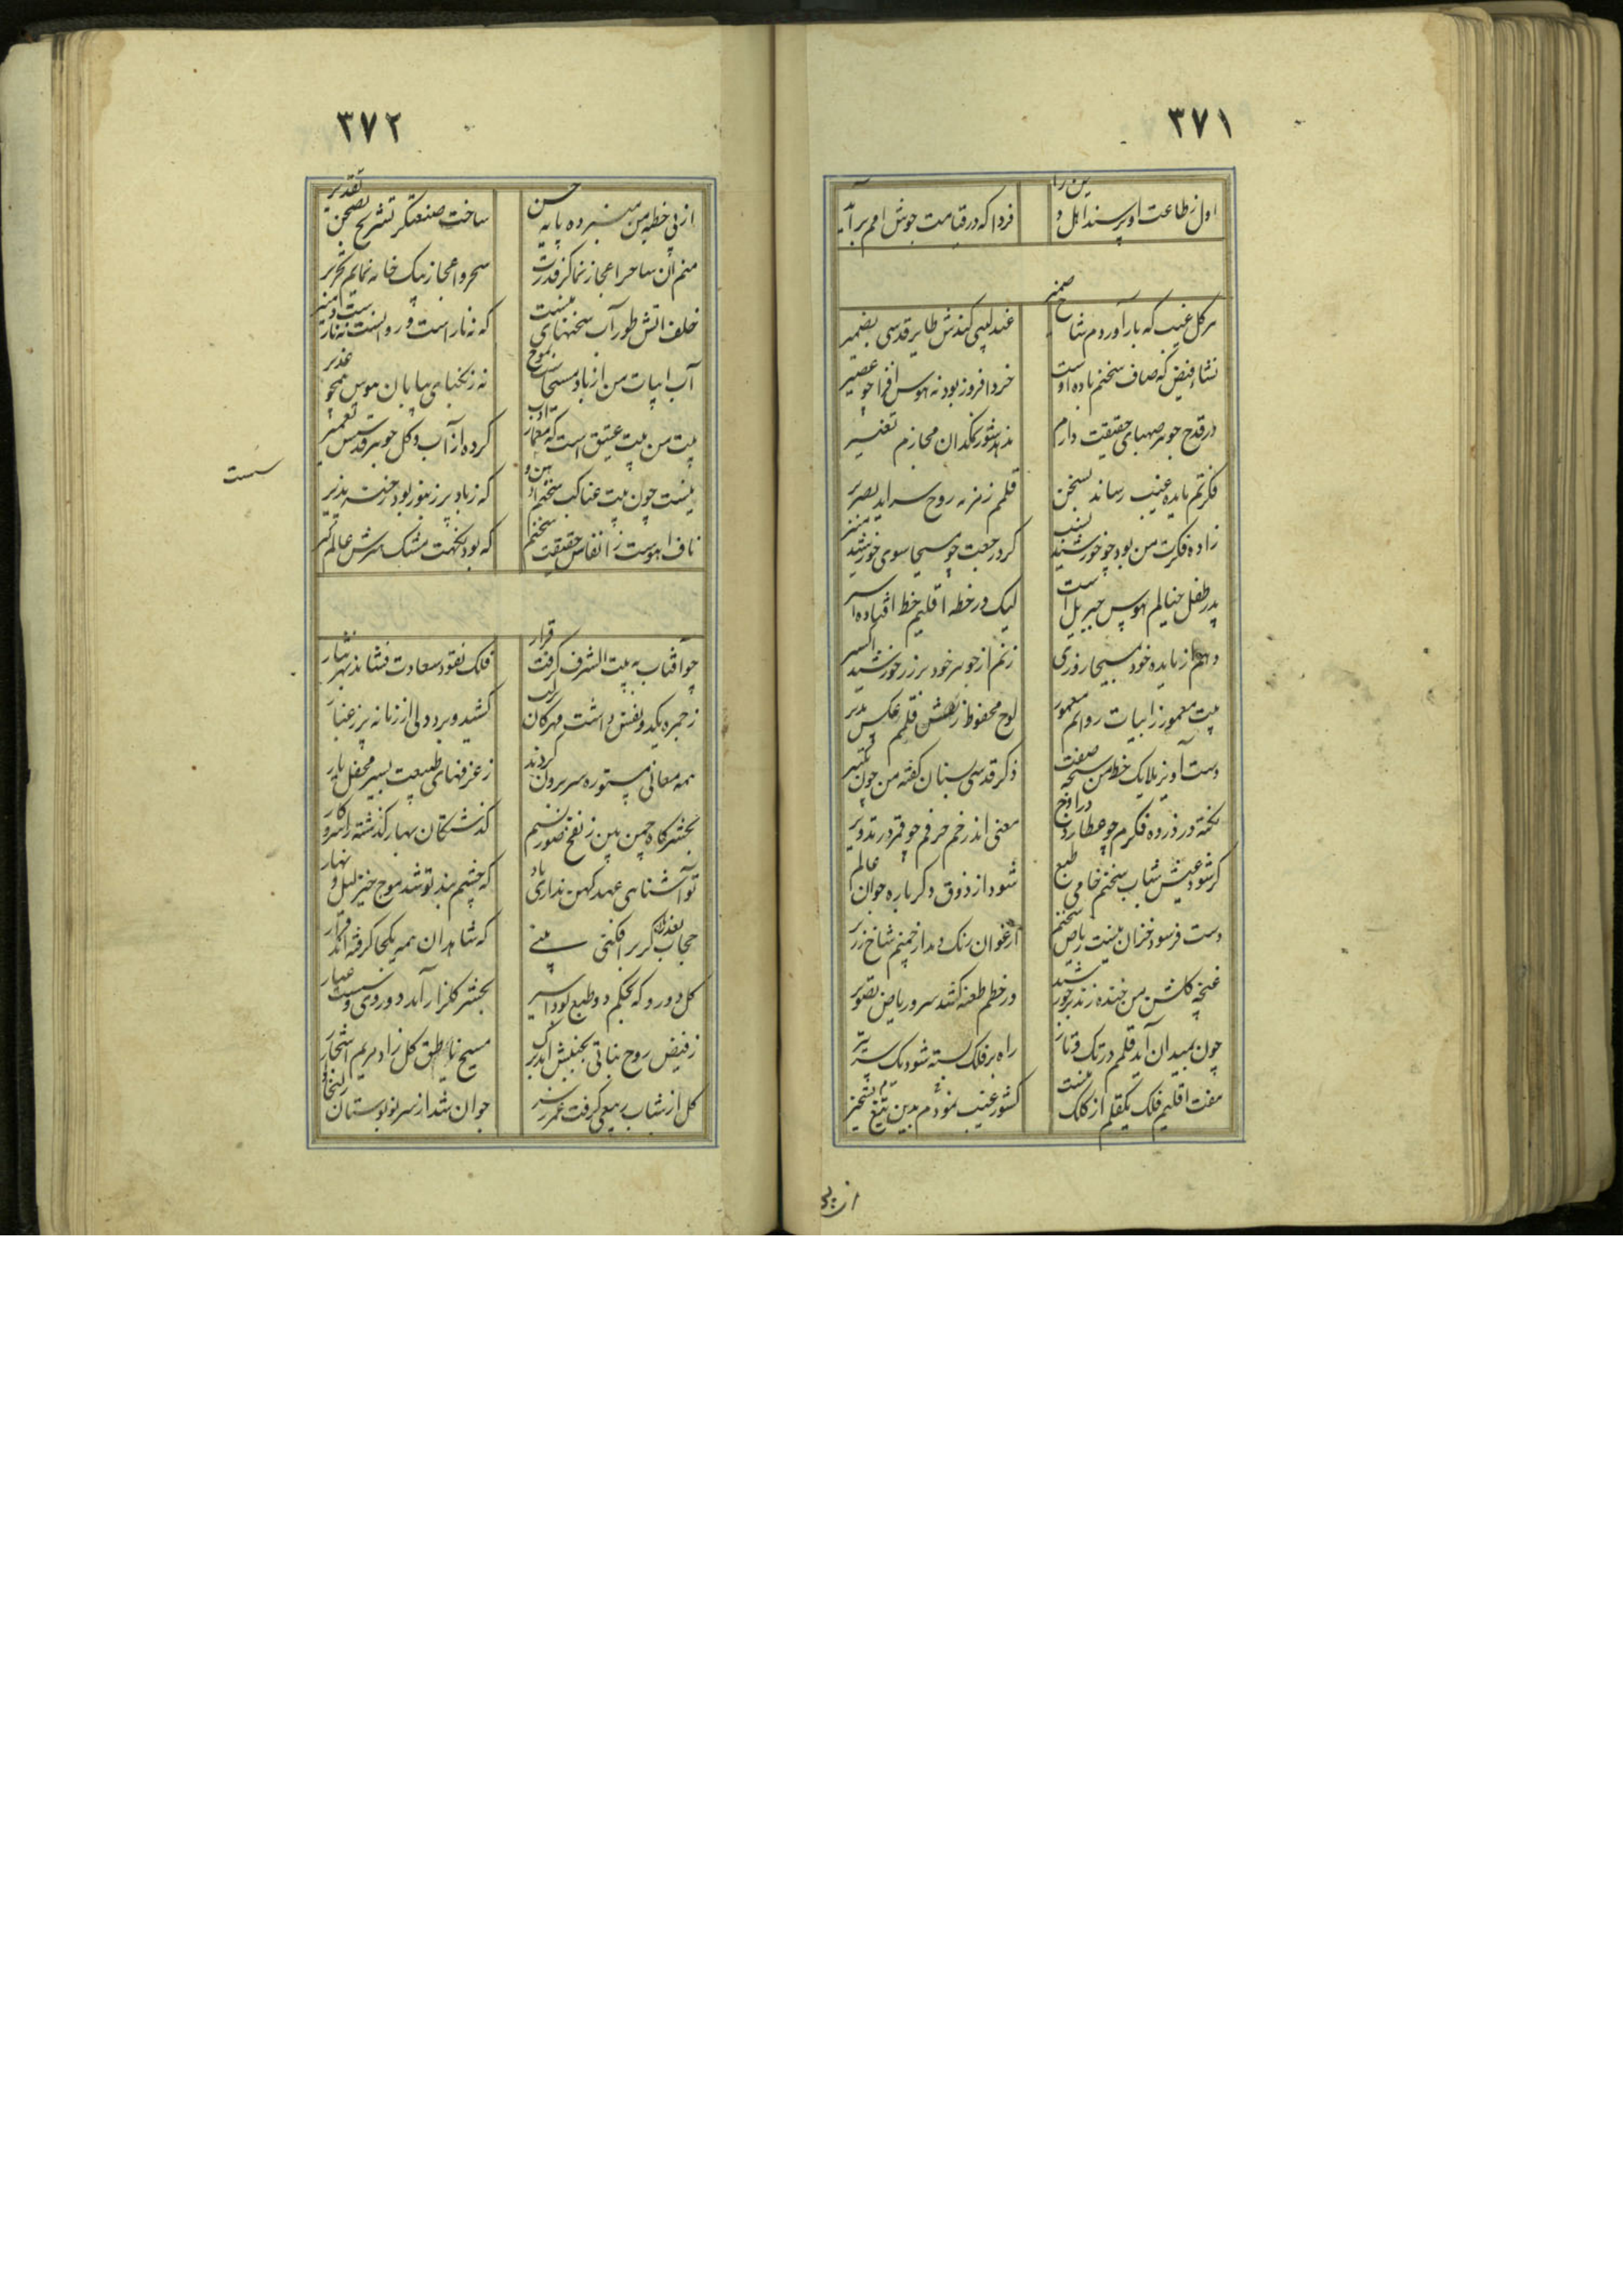 ۳۷۱
اول ز طاعت او پرسند اهل دین را
فردا که در قیامت جوش امم برآید
هر گل غیب که بار آوردم شاخ ضمیر
عندلیبی کندش طایر قدسی بضمیر
نشاء فیض که صاف سخنم باده اوست
خرد افروز بود نه هوس افزا چو عصیر
در قدح جوهر صهبای حقیقت دارم
ندهد شور نمکدان مجازم تغییر
فکرتم مایده غیب رساند بسخن
قلمم زمزمه روح سراید بصریر
زاده فکرت من بود چو خورشید نسب
کرد رجعت چو مسیحا سوی خورشید منیر
پدر طفل خیالم هوس جبریل است
لیک در خطه اقلیم خط افتاده اسیر
دهم از مایده خود مسیحا روزی
زنم از جوهر خود بر زر خورشید اکسیر
بیت معمور ز ابیات روانم معمور
لوح محفوظ ز نقش قلمم عکس پذیر
دست آویز ملایک خط من سبحه صفت
ذکر قدسی سبقان گفته من چون تکبیر
نکته در ذروه فکرم چو عطارد در اوج
معنی اندر خم حرفم چو قمر در تدویر
گر شود عیش شباب سخنم خامی طبع
شود از ذوق دگر باره جوان عالم پیر
دست فرسود خزان نیست ریاض سخنم
ارغوان رنگ دمد از چمنم شاخ زریر
غنچه گلشن من خنده زند بر خورشید
ور خطم طعنه کشد سرو ریاض تصویر
چون بمیدان آید قلمم در تک و تاز
راه بر فلک بسته شود یک سر تیر
هفت اقلیم فلک یکقلم از کلک منست
کشور غیب نمودم بدین تیغ تسخیر
از پی
۳۷۲
از پی خطبه من منبر ده پایه حسن
ساخت صنعتگر تشریح بصحن تقدیر
منم آن ساحر اعجاز نما کز قدرت
سحر و اعجاز بیک خامه نمایم تحریر
خلف اتش طور آب سخنهای منست
که نه نار است و روانست نه نار است و منیر
آب ابیات من از باد مسیحاست بموج
نه ز یخهای بیابان هوس همچو غدیر
بیت من بیت عتیق است که معمار ادب
کرده از آب و گل جوهر قدسش تعمیر
نیست چون بیت عناکب سخنم زاد هن و
که ز باد پر زنبور بود رخنه پذیر
ناف آهوست ز انفاس حقیقت سخنم
که بود نکهت مشک هنرش عالم گیر
سست
چو آفتاب به بیت الشرف گرفت قرار
فلک نقود سعادت فشاند بهر نثار
ز جمره یکد و نفس داشت مهرکان برلب
کشید و برد دلی از زمانه پر ز غبار
همه معانی مستوره سر برون کردند
ز غرفهای طبیعت بسیر محفل یار
بحشرگاه چمن بین ز نفخ صور نسیم
گذشتگان بهار گذشته را سر و کار
تو آشناهی عهد کهن نداری یاد
که چشم بند تو شد موج خیز لیل و نهار
حجاب بعد زمان گر برافکنی بینی
که شاهدان همه یکجا گرفته اند قرار
گل دورو که بحکم دو طبع بود اسیر
بحشر گلزار آمد دورویی و نسبت عیار
ز فیض روح نباتی بجنبش آمد برگ
مسیح ناطق گل زاد مریم اشجار
گل از شباب ربیعی گرفت عمر ز سر
جوان شد از سر نو بوستان زلیخا وار